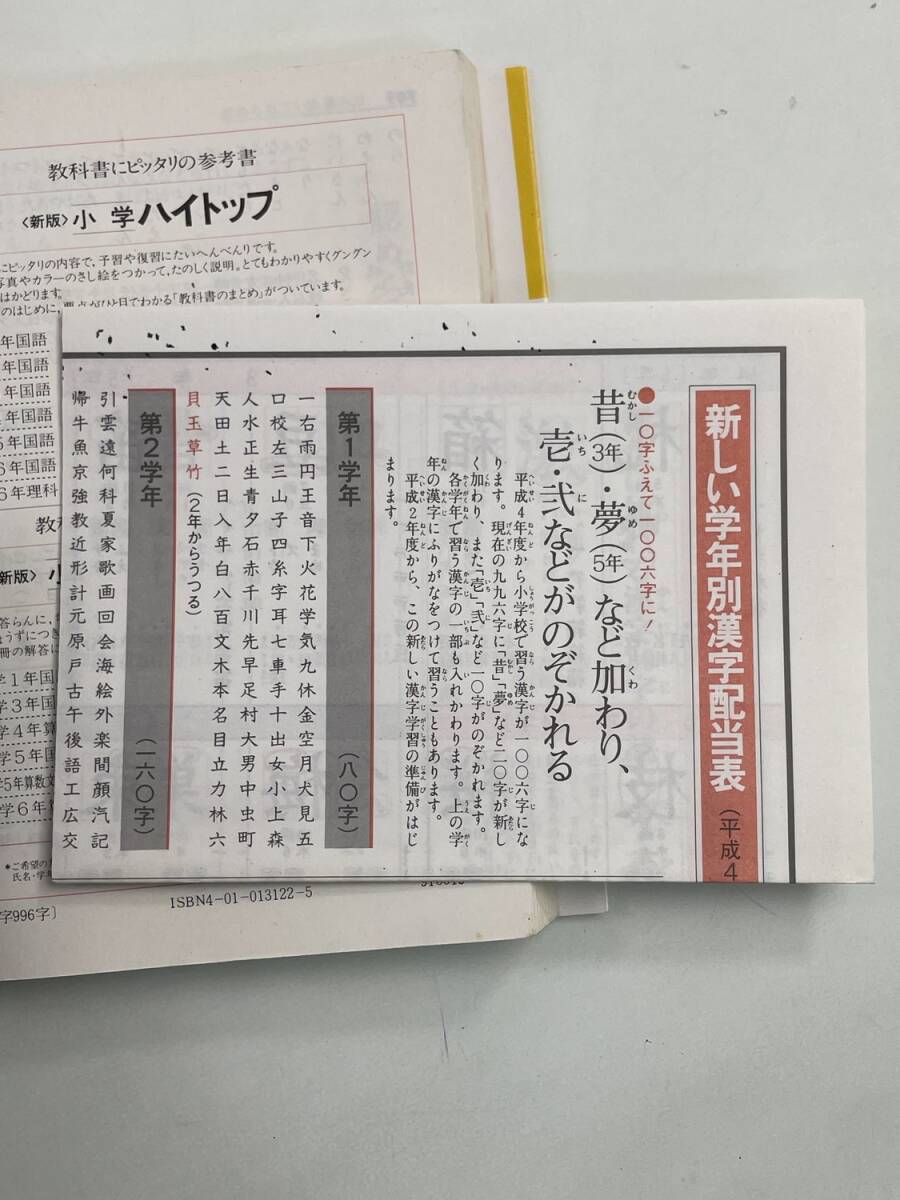 教科書にピッタリの参考書
〈新版〉小学ハイトップ
にピッタリの内容で、予習や復習にたいへんべんりです。
写真やカラーのさし絵をつかって、たのしく説明。とてもわかりやすくグングン
はかどります。
のはじめに、要点がひと目でわかる「教科書のまとめ」がついています。
年国語
年国語
年国語
年国語
5年国語
6年国語
6年理科
教
新版〉小
答らんに、
冊の解答に
学1年国
学3年国
学4年算
学5年国
学5年算数文
学6年算
●ご希望の
氏名・学年
ISBN4-01-013122-5
字996字]
新しい学年別漢字配当表(平成4
●一〇字ふえて一〇〇六字に!
昔(3年)・夢(5年)など加わり、
壱・弐などがのぞかれる
平成4年度から小学校で習う漢字が一〇〇六字にな
ります。現在の九九六字に「昔」「夢」など二〇字が新し
く加わり、また「壱」「弐」など一〇字がのぞかれます。
各学年で習う漢字の一部も入れかわります。上の学
年の漢字にふりがなをつけて習うこともあります。
平成2年度から、この新しい漢字学習の準備がはじ
まります。
第1学年(八〇字)
一右雨円王音下火花学気九休金空月犬見五
口校左三山子四糸字耳七車手十出女小上森
人水正生青夕石赤千川先早足村大男中虫町
天田土二日入年白八百文木本名目立力林六
貝玉草竹(2年からうつる)
第2学年(一六〇字)
引雲遠何科夏家歌画回会海絵外楽間顔汽記
帰牛魚京強教近形計元原戸古午後語工広交